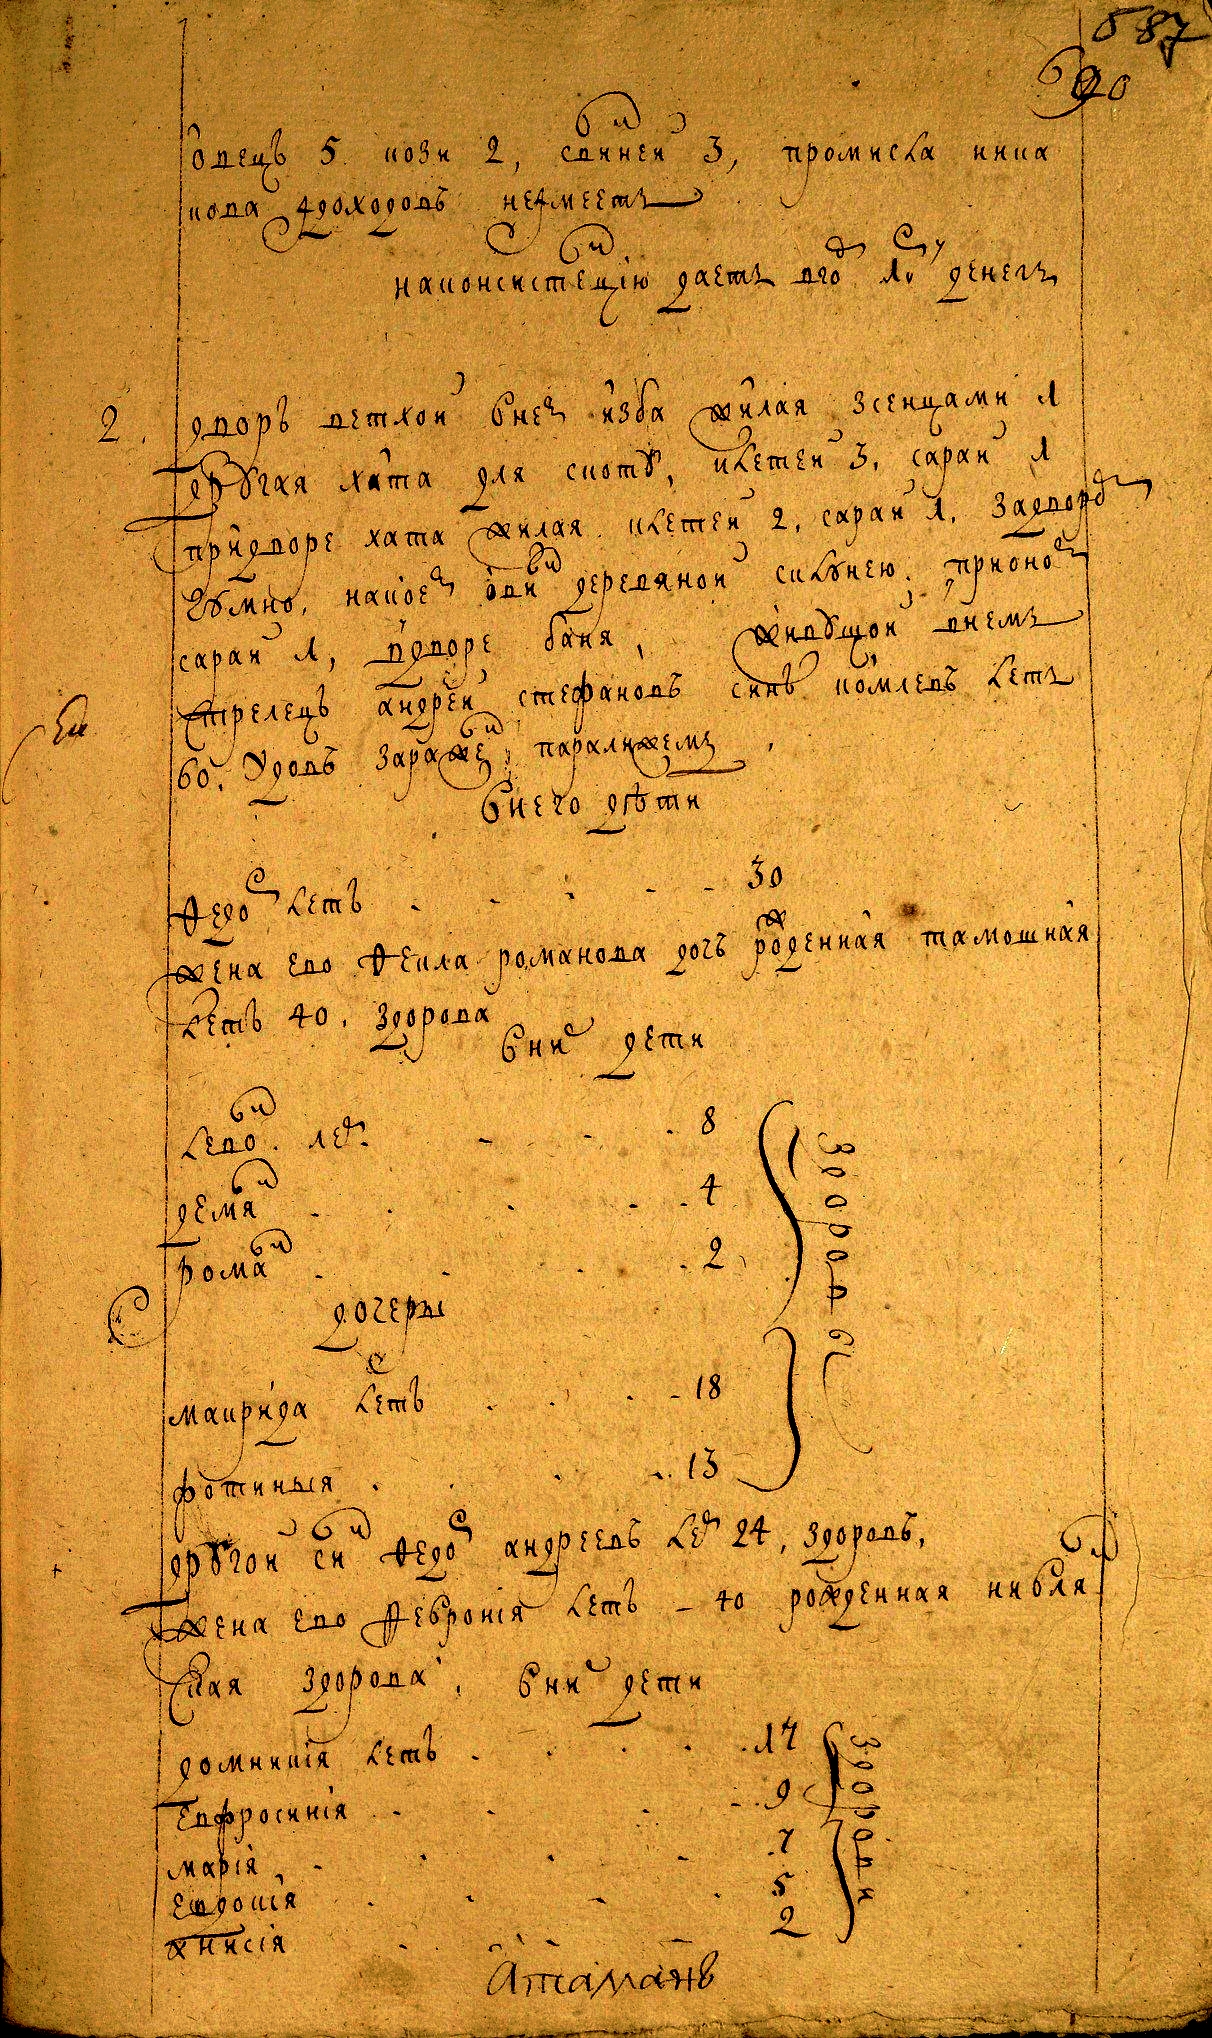 587
690
овецъ 5 кози 2, свиней 3, промисла ника
кова ꙗдоходовъ неимеетъ
наконсистенцїю даетъ вгод 1. ру денегъ
2. дворъ ветхой внем изба жилая зсенцами 1
другая хата для скоту, клетей 3, сарай 1
придворе хата жилая клетей 2, сарай 1, задвором
гумно, накоем овин деревяной склунею, прионом
сарай 1, вдворе баня, живущой внемъ
стрелецъ андрей стефановъ синъ комлевъ летъ
60, удовъ заражен паралижемъ
внего дѣти
Ѳедос летъ 30
жена ево Ѳекла романова дочъ рожденная тамошная
летъ 40, здорова
вних дети
Левон лет 8
демян 4
роман 2
дочеры
маврида летъ 18
фотиныя 13
здорови
другой син Ѳедос андреевъ лет 24, здоровъ,
жена ево Ѳевронїя летъ 40 рожденная
ская здорова, вних дети
домникїя летъ 17
Евфросинїя 9
марїя 7
Евдокїя 5
анисїя 2
здорови
Атаманъ